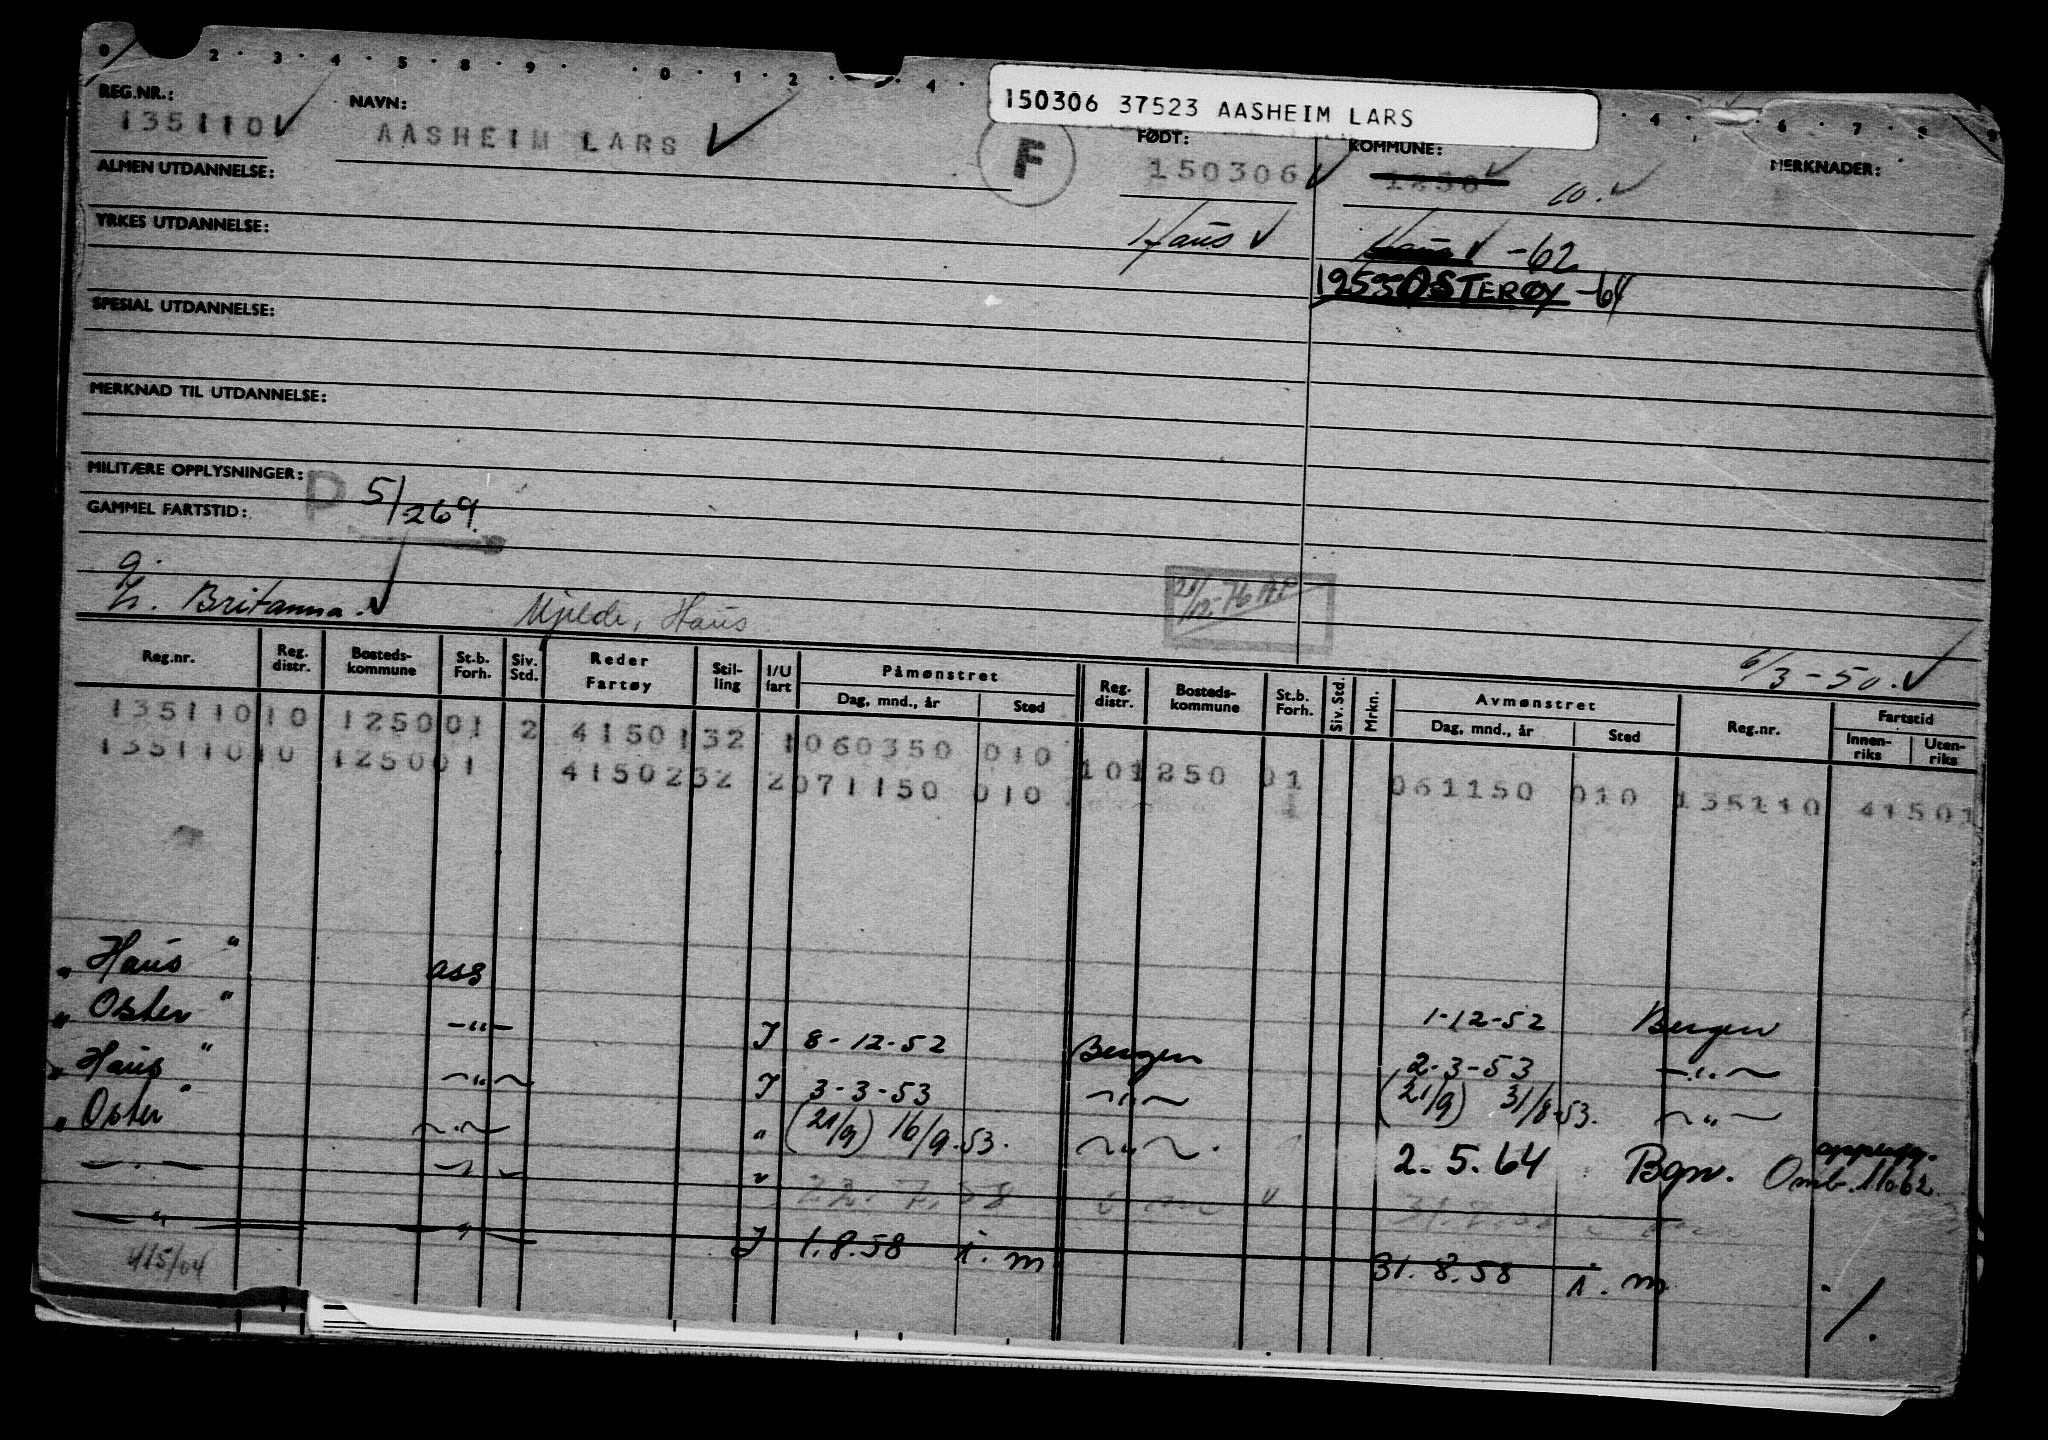 150306 37523 AASHEIM LARS
0 2 · 3 · 4 · 5 · 8 · 9 · · 0 · 1 · 2 · 4 · 4 · 6 · 7 8 9
REG.NR.: NAVN: FØDT: KOMMUNE: MERKNADER:
135110 AASHEIM LARS F 150306 1250 10.
ALMEN UTDANNELSE:
YRKES UTDANNELSE: Haus Haus -62
1253 OSTERØY -64
SPESIAL UTDANNELSE:
MERKNAD TIL UTDANNELSE:
MILITÆRE OPPLYSNINGER: P 5/269.
GAMMEL FARTSTID:
Britanna. Mjelde, Haus
6/3-50.
Reg.nr. Reg. distr. Bosteds-kommune St.b. Forh. Siv. Std. Reder Fartøy Stil-ling I/U fart Påmønstret Dag, mnd., år Sted Reg. distr. Bosteds-kommune St.b. Forh. Siv. Std. Mrkn. Avmønstret Dag, mnd., år Sted Reg.nr. Fartstid Innen-riks Uten-riks
135110 10 1250 01 2 41501 32 1 060350 010 10 1250 01 061150 010 135110 41501
135110 10 1250 01 41502 32 2 071150 010
" Haus " ass 1-12-52 Bergen
" Oster " -"- I 8-12-52 Bergen 2-3-53 -"-
" Haus " -"- I 3-3-53 -"- (21/9) 31/8-53. -"-
" Oster " -"- " (21/9) 16/9-53. -"- 2.5.64 Bgn. Omb. 11062
-"- -"- " 22.7.58
-"- -"- I 1.8.58 i.m 31.8.58 i.m
415/04